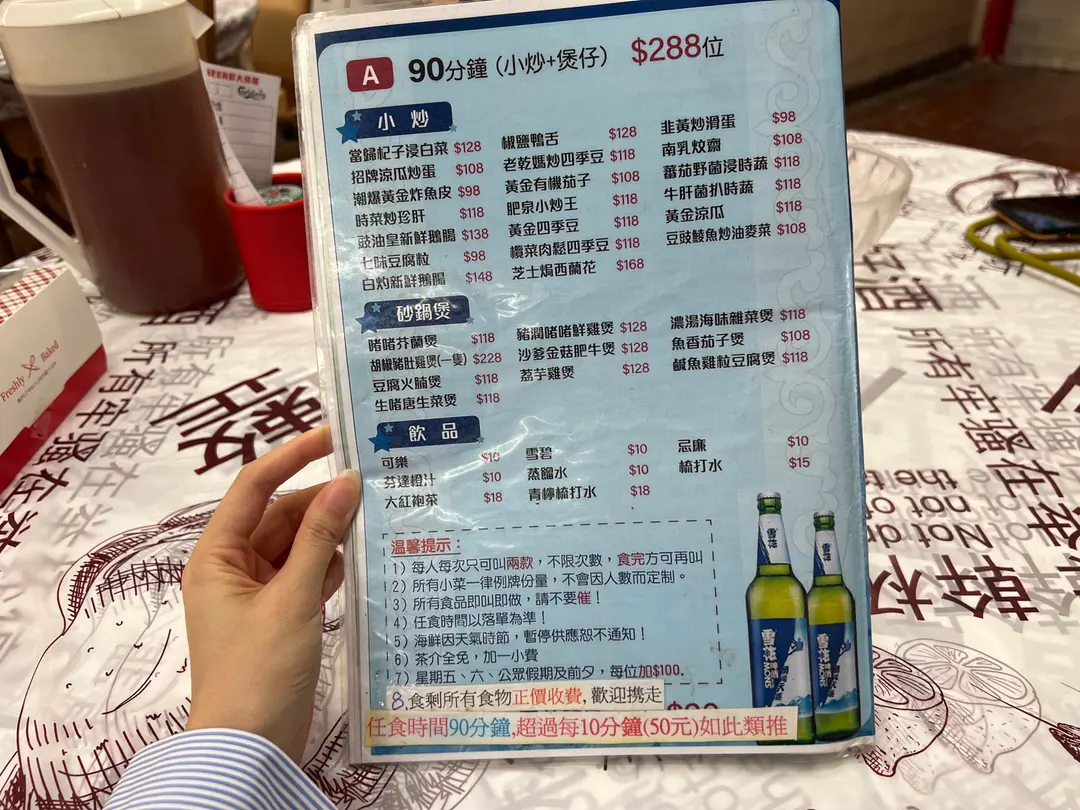 A 90分鐘 (小炒+煲仔) $288位
小炒
當歸杞子浸白菜 $128
招牌涼瓜炒蛋 $108
潮爆黃金炸魚皮 $98
時菜炒珍肝 $118
豉油皇新鮮鵝腸 $138
七味豆腐粒 $98
白灼新鮮鵝腸 $148
椒鹽鴨舌 $128
老乾媽炒四季豆 $118
黃金有機茄子 $108
肥泉小炒王 $118
黃金四季豆 $118
欖菜肉鬆四季豆 $118
芝士焗西蘭花 $168
韭黃炒滑蛋 $98
南乳炆齋 $108
蕃茄野菌浸時蔬 $118
牛肝菌扒時蔬 $118
黃金涼瓜 $118
豆豉鯪魚炒油麥菜 $108
砂鍋煲
啫啫芥蘭煲 $118
胡椒豬肚雞煲(一隻) $228
豆腐火腩煲 $118
生啫唐生菜煲 $118
豬潤啫啫鮮雞煲 $128
沙爹金菇肥牛煲 $128
荔芋雞煲 $128
濃湯海味雜菜煲 $118
魚香茄子煲 $108
鹹魚雞粒豆腐煲 $118
飲品
可樂 $10
芬達橙汁 $10
大紅袍茶 $18
雪碧 $10
蒸餾水 $10
青檸梳打水 $18
忌廉 $10
梳打水 $15
溫馨提示：
1) 每人每次只可叫兩款，不限次數，食完方可再叫
2) 所有小菜一律例牌份量，不會因人數而定制。
3) 所有食品即叫即做，請不要催！
4) 任食時間以落單為準！
5) 海鮮因天氣時節，暫停供應恕不通知！
6) 茶介全免，加一小費
7) 星期五、六、公眾假期及前夕，每位加$100.
8.食剩所有食物正價收費, 歡迎携走
任食時間90分鐘,超過每10分鐘(50元)如此類推
雪花
雪花
Freshly Baked
Carlsberg
所有牢騷在
所有牢騷在
Not d
not o
in the
幹杯